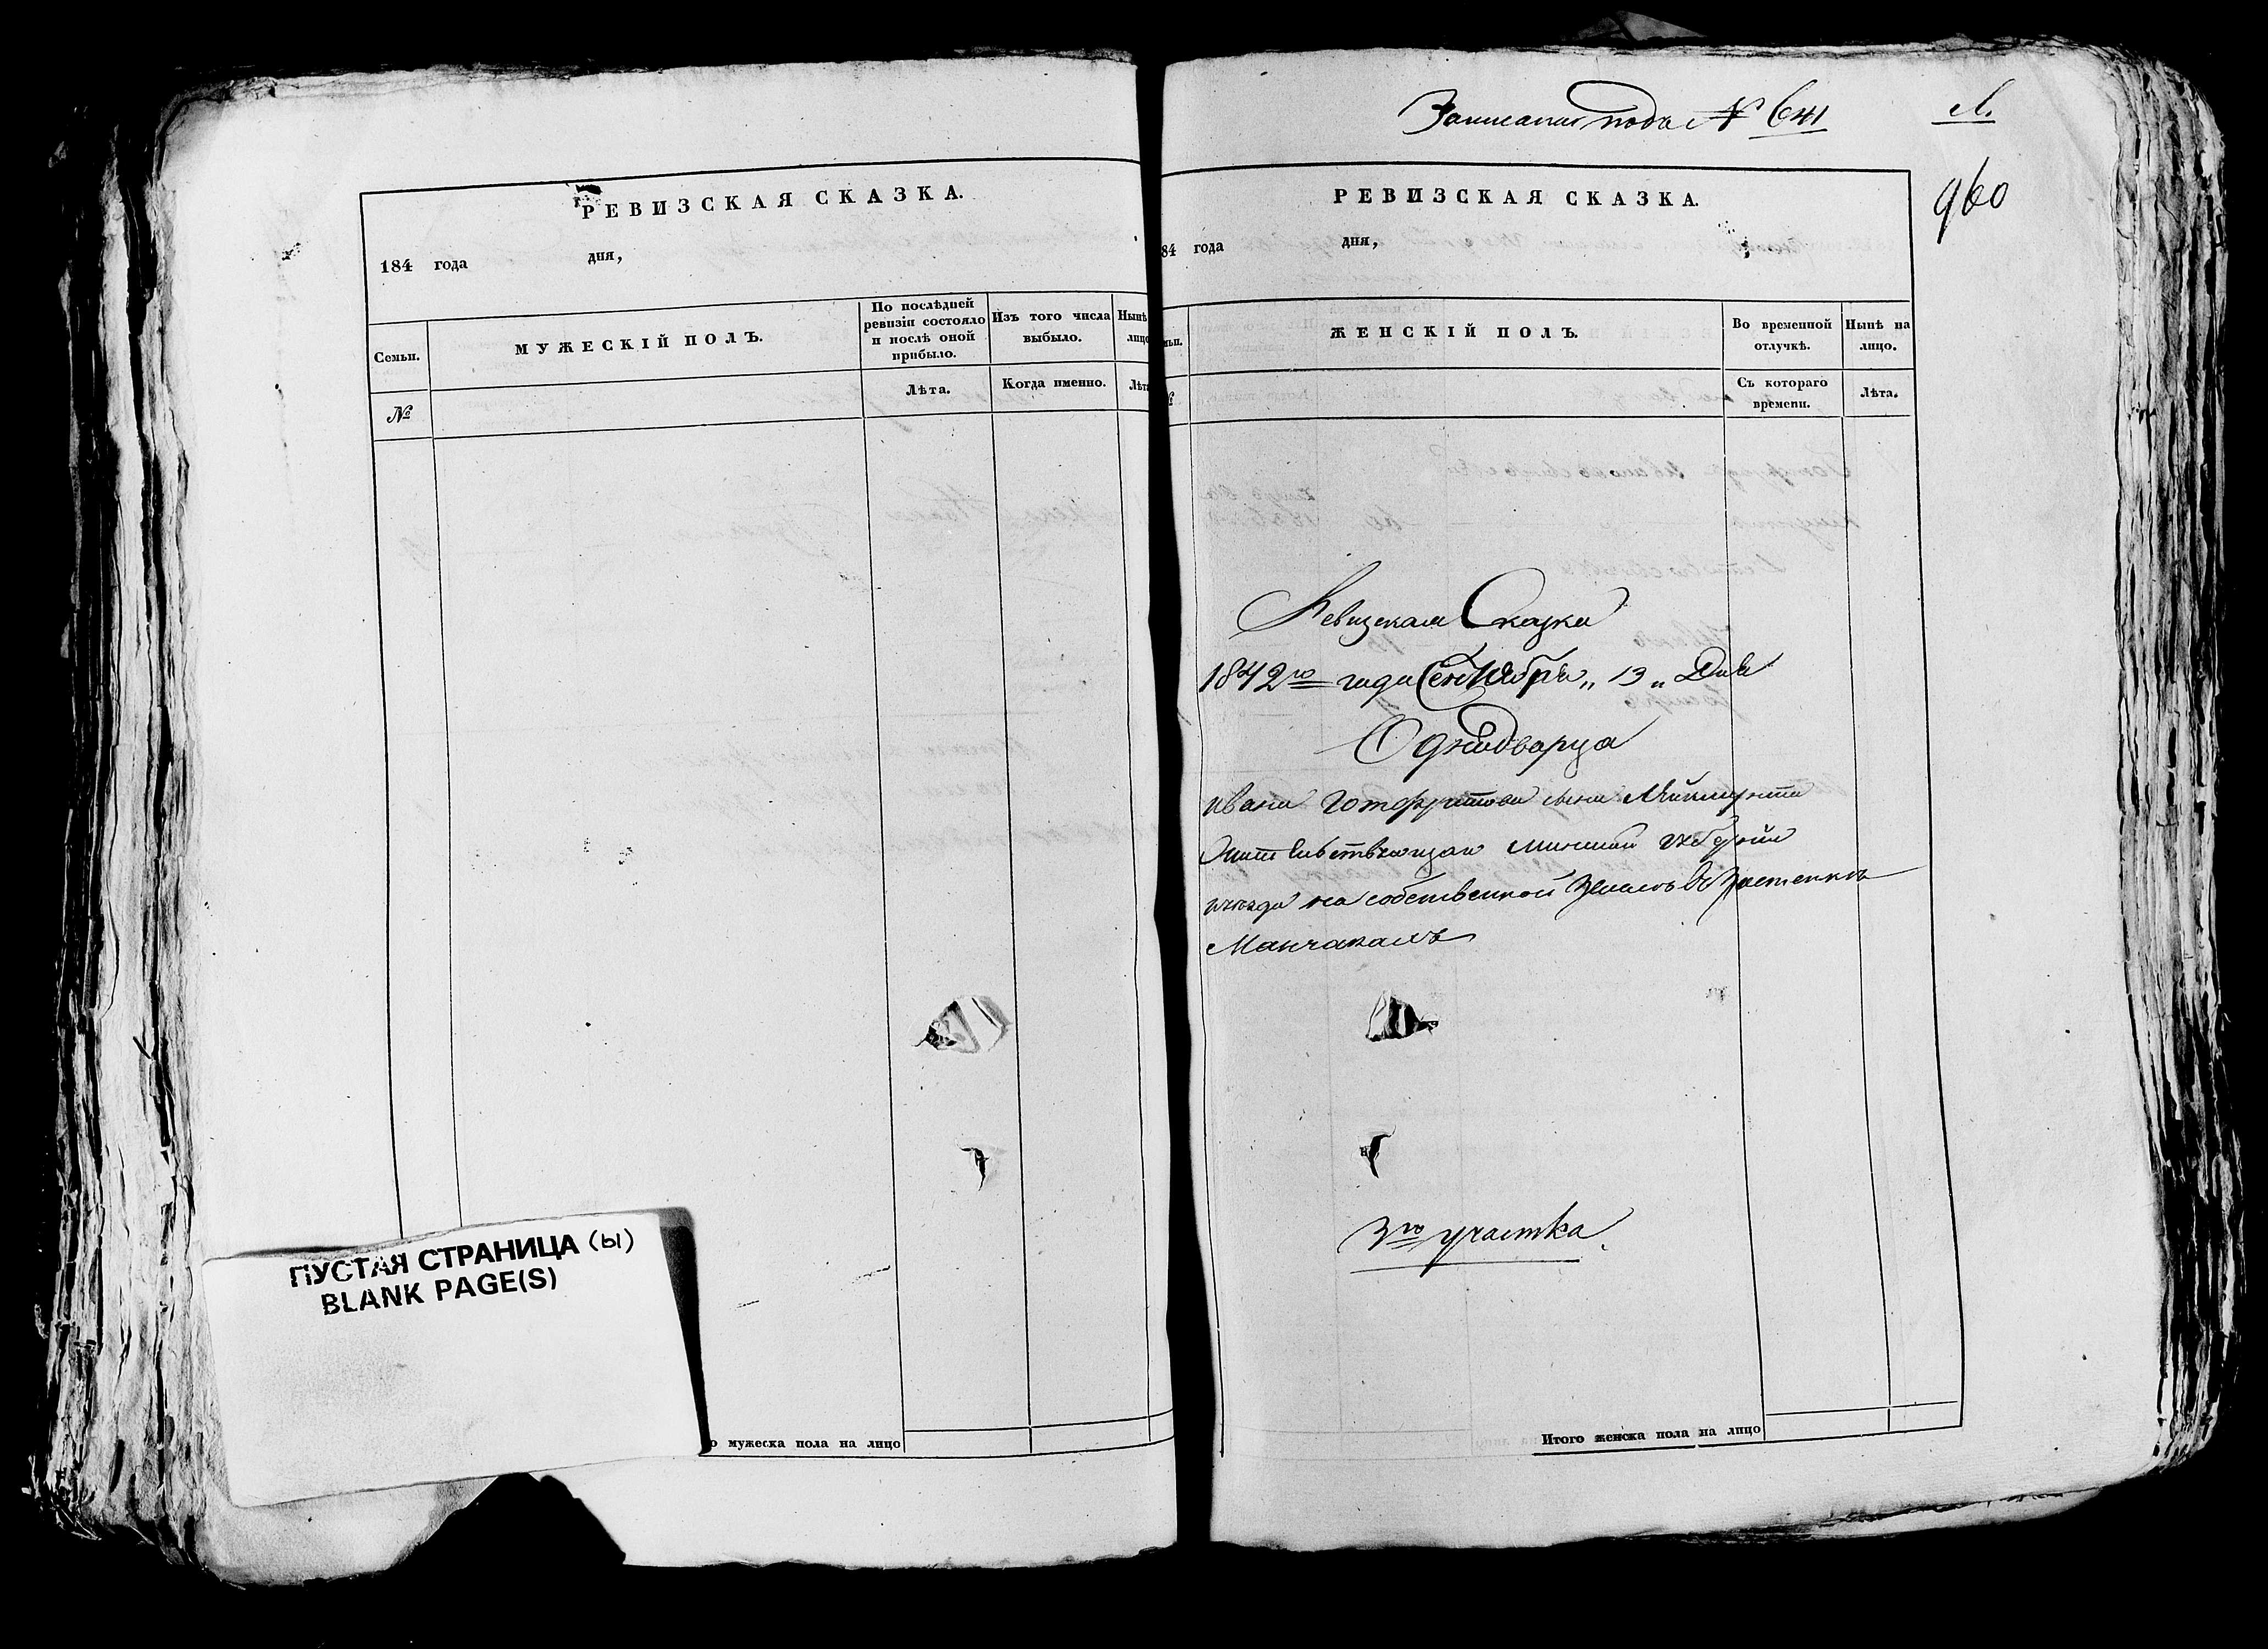 РЕВИЗСКАЯ СКАЗКА.
184 года дня,
Семьи.
МУЖЕСКІЙ ПОЛЪ.
По послѣдней
ревизіи состояло
и послѣ оной
прибыло.
Изъ того числа
выбыло.
Нынѣ
лицо
№
Лѣта.
Когда именно.
Лѣта
ПУСТАЯ СТРАНИЦА (ы)
BLANK PAGE(S)
о мужеска пола на лицо
Записана подъ № 641
Л.
960
РЕВИЗСКАЯ СКАЗКА.
84 года дня,
ЖЕНСКІЙ ПОЛЪ.
Во временной
отлучкѣ.
Нынѣ на
лицо.
Съ котораго
времени.
Лѣта.
Ревизская Сказка
1842го года Сентября „ 13 „ Дня
Однодворца
Ивана Готфритова сына
Минской губерніи
на собственной землѣ въ застенкѣ
3го участка
Итого женска пола на лицо